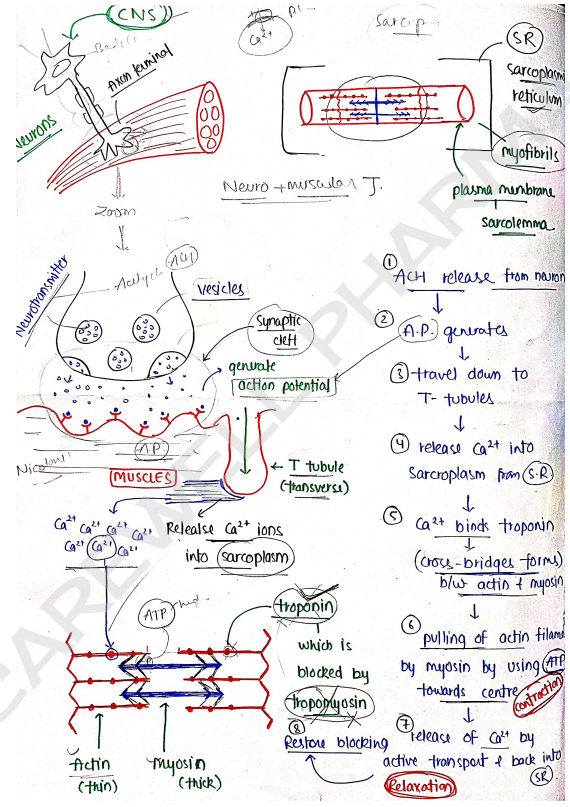 CNS
Axon terminal
Neurons
Ca²⁺
Sarcop
SR
sarcoplasmic
reticulum
myofibrils
plasma membrane
sarcolemma
Neuro + muscular J.
Zoom
Neurotransmitter
ACH
vesicles
synaptic
cleft
generate
action potential
A.P.
MUSCLES
T tubule
(transverse)
Ca²⁺ Ca²⁺ Ca²⁺ Ca²⁺
Ca²⁺ Ca²⁺ Ca²⁺
Release Ca²⁺ ions
into sarcoplasm
ATP
troponin
which is
blocked by
tropomyosin
⑧
Restore blocking
Actin
(thin)
Myosin
(thick)
①
ACH release from neuron
② A.P. generates
③ travel down to
T- tubules
④ release Ca²⁺ into
Sarcroplasm from S.R
⑤ Ca²⁺ binds troponin
(cross-bridges forms)
b/w actin & myosin
⑥
pulling of actin filame
by myosin by using ATP
towards centre
contraction
⑦
release of Ca²⁺ by
active transport & back into
SR
Relaxation
CAREWELL PHARM